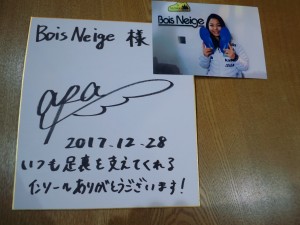 Bois Neige 様
2017.12.28
いつも足裏を支えてくれる
インソールありがとうございます!
Bois Neige